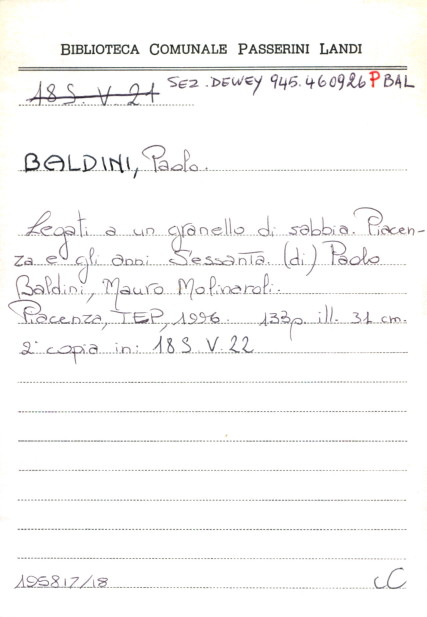 BIBLIOTECA COMUNALE PASSERINI LANDI
18 S. V. 21 SEZ. DEWEY 945.460926 P BAL
BALDINI, Paolo.
Legati a un granello di sabbia. Piacen-
za e gli anni Sessanta. (di) Paolo
Baldini, Mauro Molinaroli.
Piacenza, TEP, 1996. 133p. ill. 31 cm.
2ª copia in: 18 S. V. 22
195817/18 CC